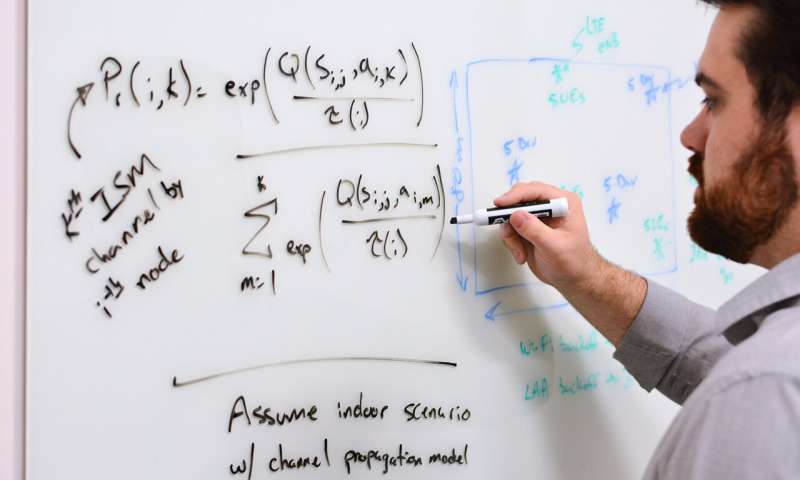 Pr(i,k) = exp(Q(Si,j, ai,k) / τ(i))
K
Σ exp(Q(Si,j, ai,m) / τ(i))
m=1
kth ISM
channel by
i-th node
Assume indoor scenario
w/ channel propagation model
5 LTE
eNB
5UEs
5 Dev
5 Dev
5 Dev
Wi-Fi backoff
LAA backoff